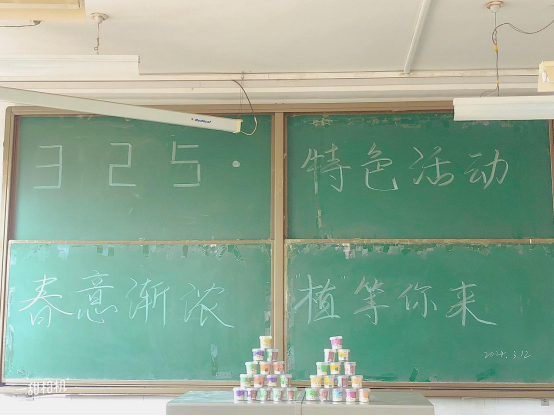 325·特色活动
春意渐浓 "植"等你来
2024.3.12